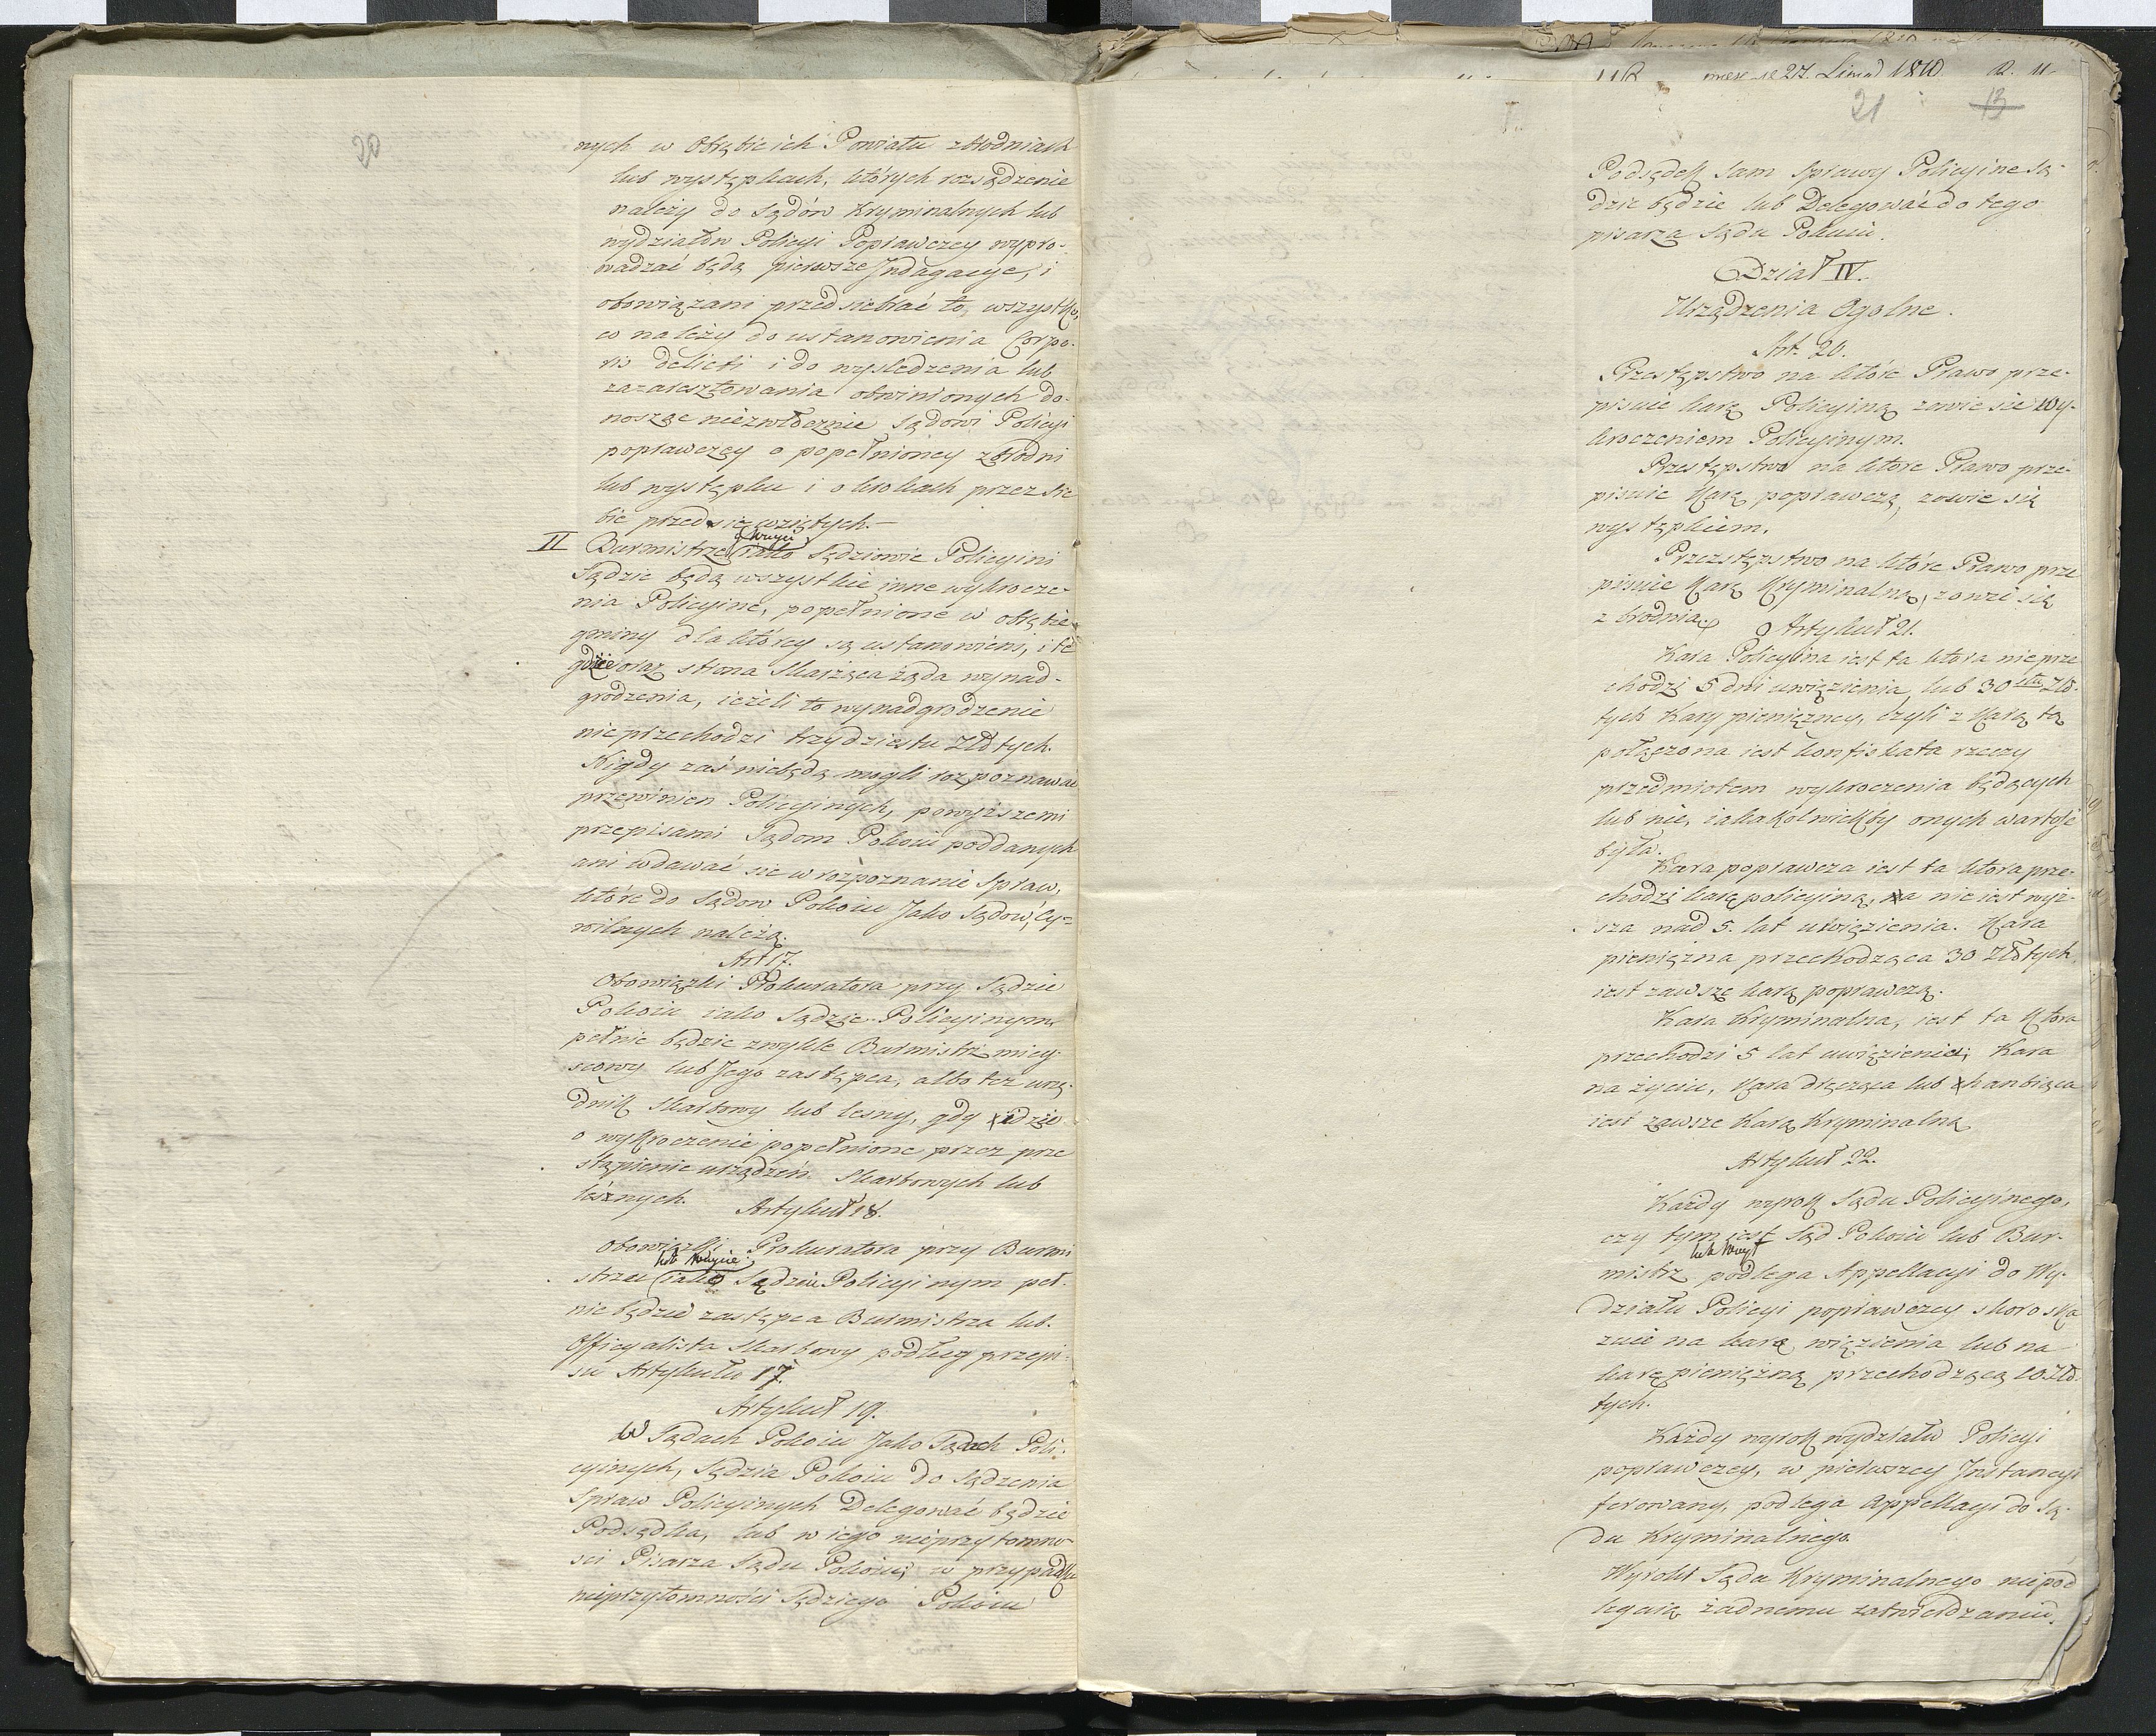 20
nych w Obrębie ich Powiatu zbrodniach
lub występkach, których rozsądzenie
należy do Sądów Kryminalnych lub
wydziałów Policyi Poprawczey wypro-
wadzać będą pierwsze Jndagacye, i
obowiązani przedsiebrać to, wszystko,
co należy do ustanowienia Corpo-
ris delicti i do wysledzenia lub
zaaresztowania obwinionych do-
nosząc niezwłocznie Sądowi Policyi
poprawczey o popełnioney zbrodni
lub występku i o krokach przez sie
bie przedsięwziętych.
II Burmistrze i Woyci iako Sędziowie Policyini
Sądzic będą wszystkie inne wykrocze-
nia Policyine, popełnione w obrębie
gminy dla którey są ustanowieni, i te
gdzie oraz strona skarżąca żąda wynad-
grodzenia, ieżeli to wynadgrodzenie
nieprzechodzi trzydziestu Złotych.
Nigdy zaś niebędą mogli rozpoznawać
przewinien Policyinych, powyższemi
przepisami Sądom Pokoiu poddanych
ani wdawać sie w rozpoznanie Spraw,
które do Sądow Pokoiu Jako Sądów Cy-
wilnych należą.
Art 17.
Obowiązki Prokuratora przy Sądzie
Pokoiu iako Sądzie Policyinym
pełnic będzie zwykle Burmistrz miey-
scowy lub Jego zastępca, albo tez urzę-
dnik skarbowy lub lesny, gdy idzie
o wykroczenie popełnione przez prze
stąpienie urządzeń Skarbowych lub
leśnych.
Artykuł 18.
Obowiązki Prokuratora przy Burmi
strzu lub Woycie iako Sędziu Policyinym peł-
nic będzie zastępca Burmistrza lub
Officyalista Skarbowy podług przepi-
su Artykułu 17.
Artykuł 19.
W Sądach Pokoiu Jako Sądach Poli-
cyinych, Sędzia Pokoiu do sądzenia
Spraw Policyinych Delegować będzie
Podsędka, lub w iego nieprzytomno-
sci Pisarza Sądu Pokoiu; w przypadku
nieprzytomności Sędziego Pokoiu
27. 1810.
21 13
Podsędek sam Sprawy Policyine są-
dzic będzie lub Delegować do tego
pisarza Sądu Pokoiu.
Dział IV.
Urządzenia Ogolne.
Art. 20.
Przestępstwo na które Prawo prze-
pisuie karę Policyiną zowie sie wy-
kroczeniem Policyinym.
Przestępstwo na które Prawo prze-
pisuie Karę poprawczą, zowie się
występkiem.
Przezstępstwo na które Prawo prze
pisuie Karę Kryminalną, zowie się
zbrodnią.
Artykuł 21.
Kara Policyina iest ta która nieprze
chodzi 5 dni uwięzienia lub 30stu Zło-
tych Kary pieniężney, czyli z Karą tą
połączona iest konfiskata rzeczy
przedmiotem wykroczenia będących
lub nie, iakakolwiekby onych wartość
była.
Kara poprawcza iest ta która prze-
chodzi karę policyiną, a nie iest wyż-
sza nad 5. lat uwięzienia. Kara
pieniężna przechodząca 30 Złotych,
iest zawsze karą poprawczą.
Kara Kryminalna, iest ta która
przechodzi 5 lat uwięzienia; Kara
na życiu, Kara dręcząca lub hanbiąca
iest zawsze Karą Kryminalną
Artykuł 22.
Każdy wyrok Sądu Policyinego,
czy tym iest Sąd Pokoiu lub Bur-
mistrz lub Woyt podlega Appellacyi do Wy-
działu Policyi poprawczey skoro ska
zuie na karę więzienia lub na
karę pieniężną przechodzącą 10. Zło-
tych.
Każdy wyrok wydziału Policyi
poprawczey, w pierwszey Jnstancyi
ferowany, podlega Appellacyi do Są-
du Kryminalnego.
Wyroki Sądu Kryminalnego niepod
legaią żadnemu zatwierdzeniu.